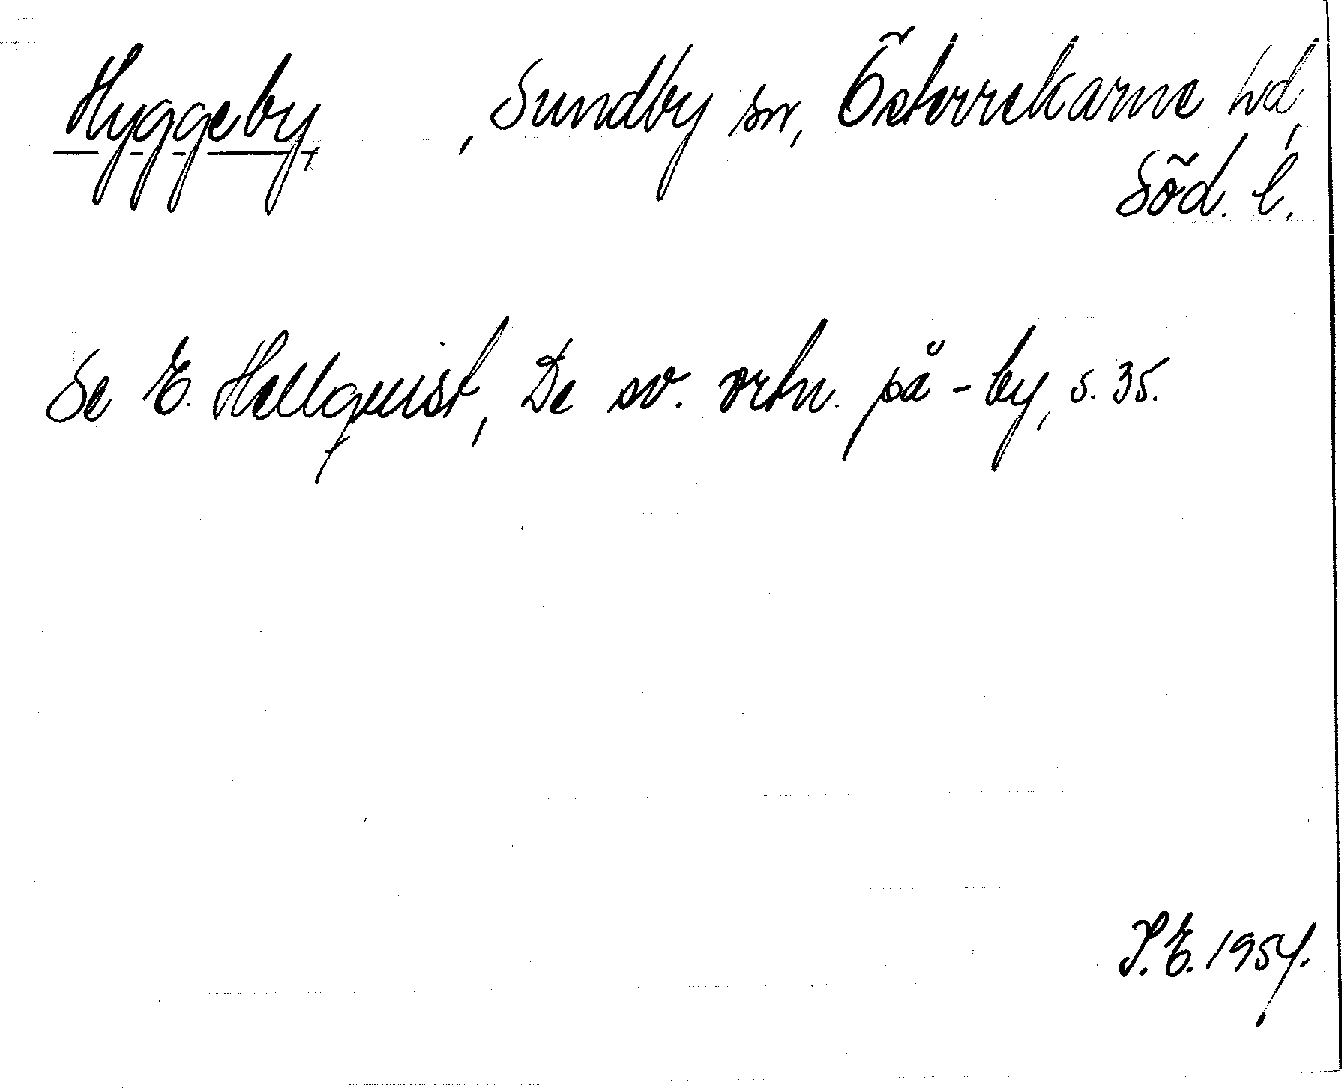 Hyggeby, Sundby sn, Österrekarne hd,
Söd. l.
Se E. Hellquist, De sv. ortn. på -by, s. 35.
I.E. 1954.